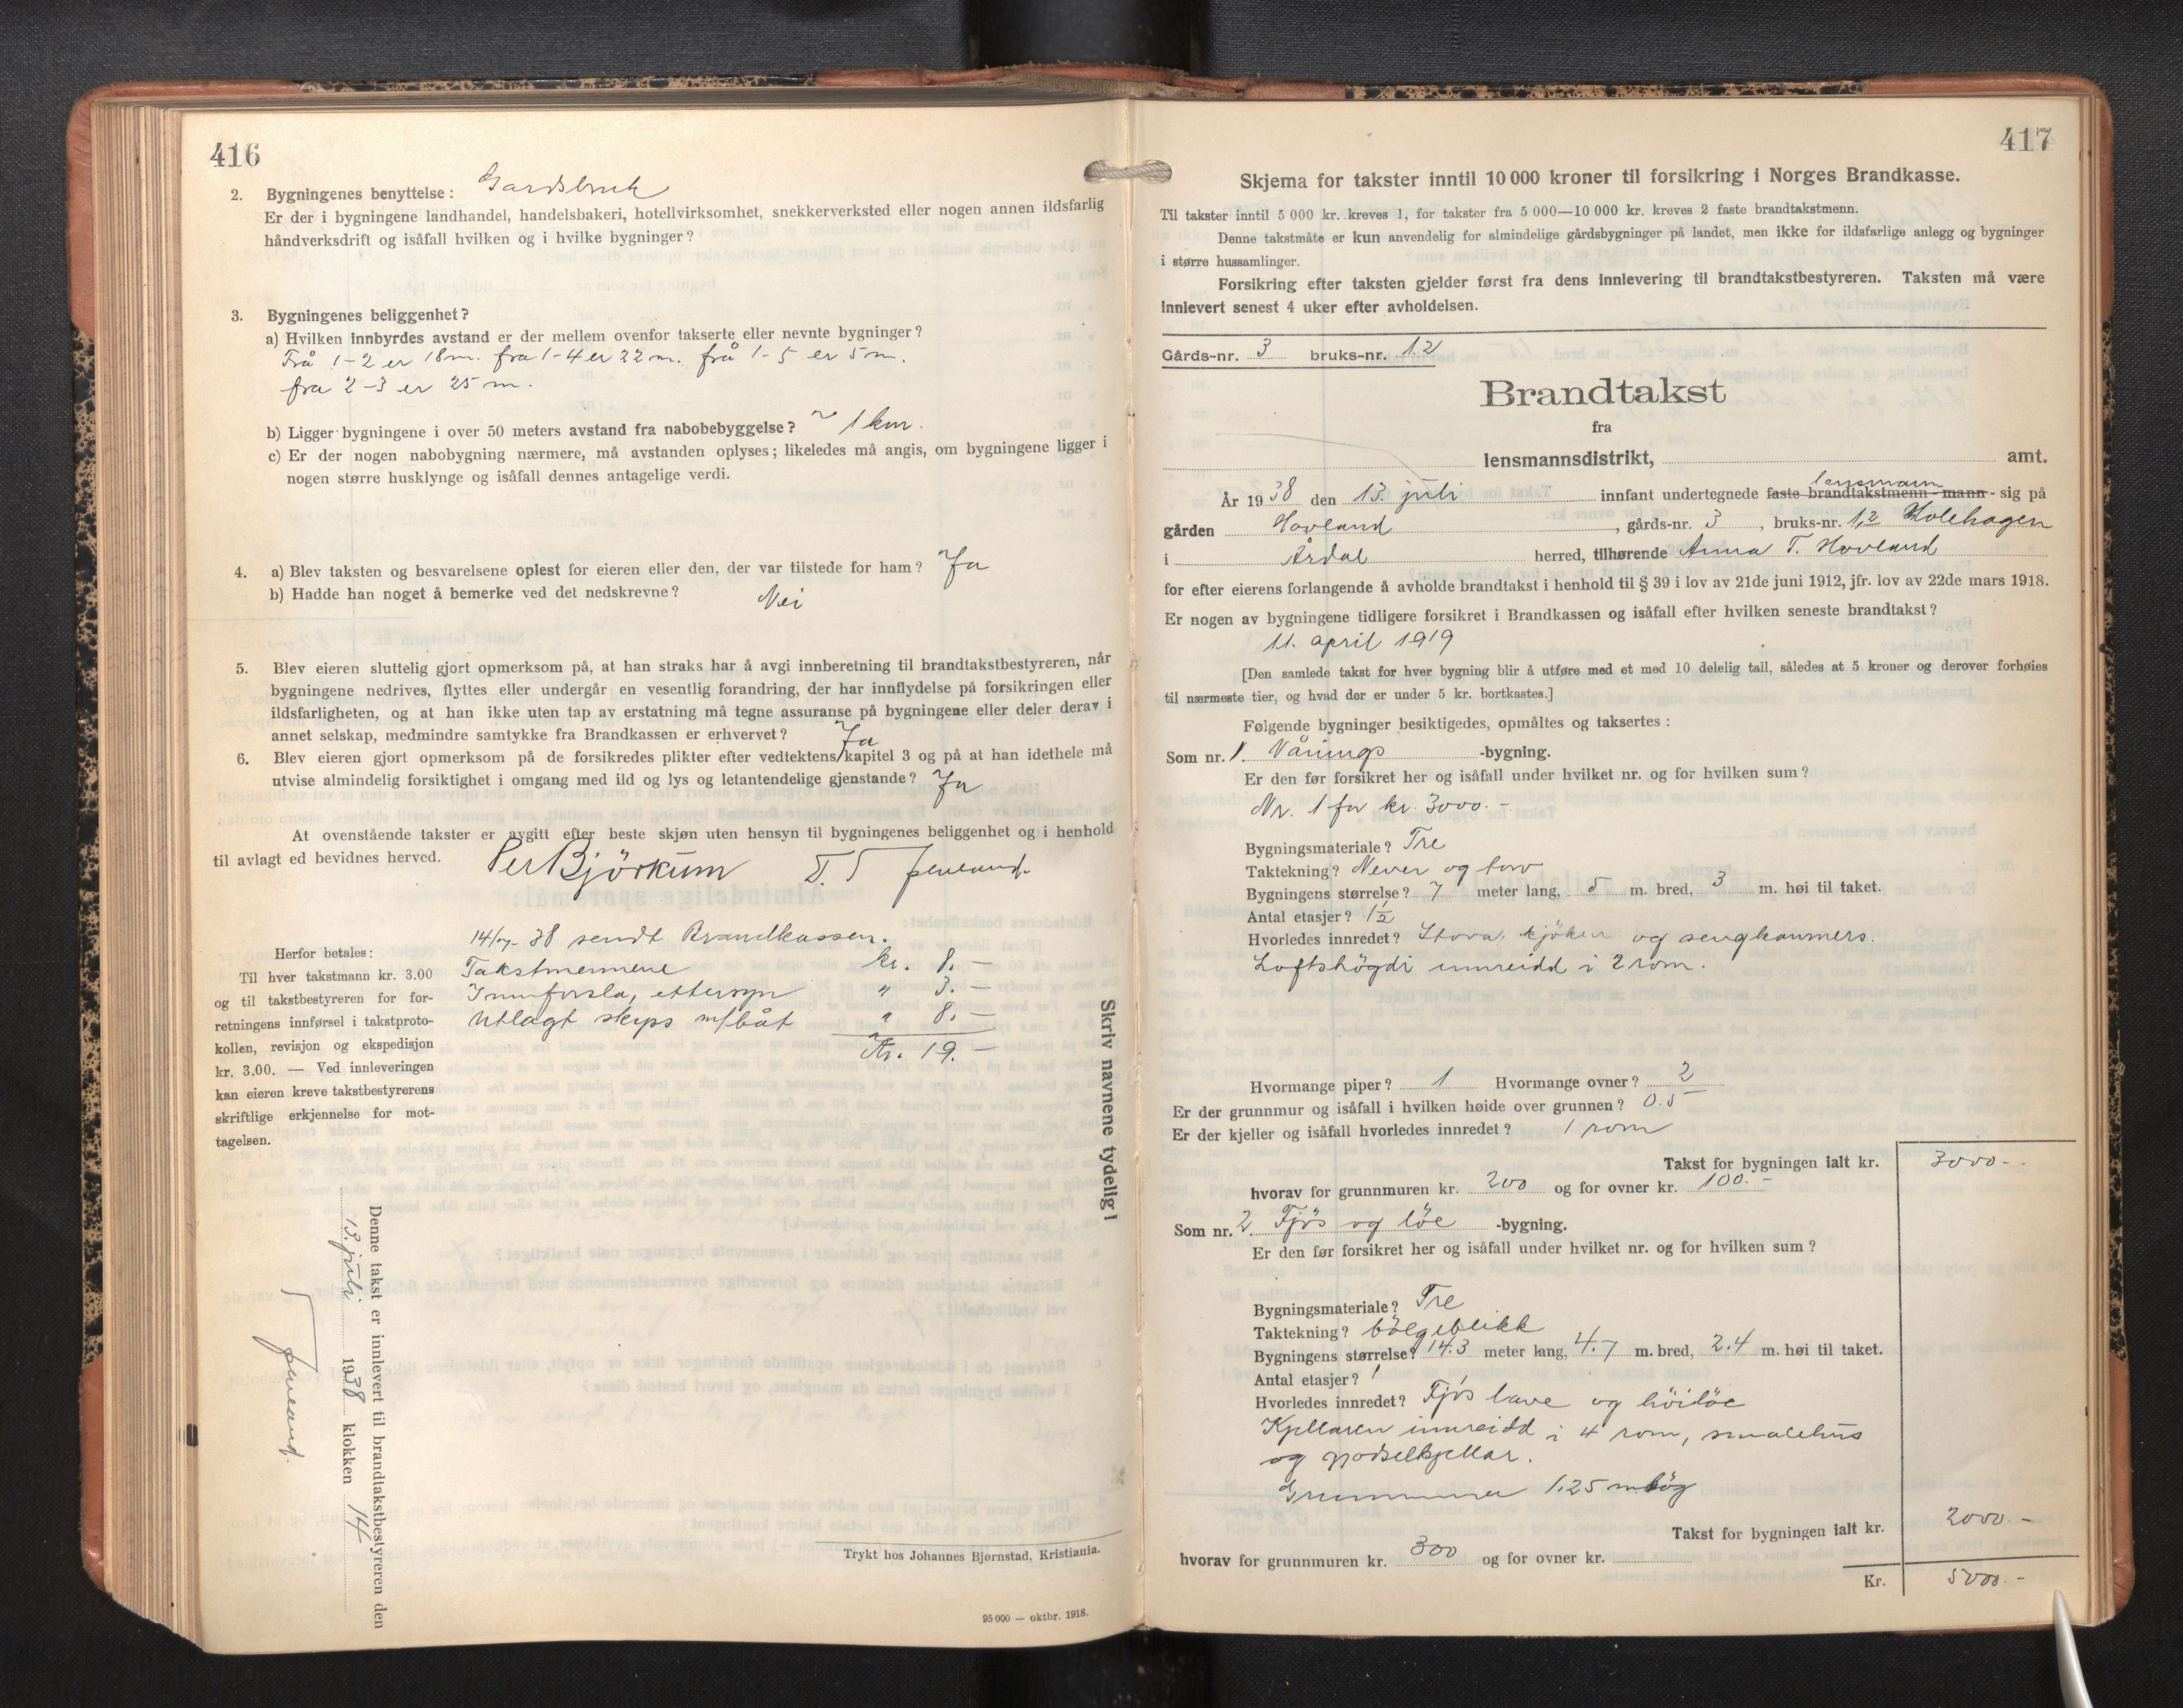 416
2. Bygningenes benyttelse: Gardsbruk
Er der i bygningene landhandel, handelsbakeri, hotellvirksomhet, snekkerverksted eller nogen annen ildsfarlig
håndverksdrift og isåfall hvilken og i hvilke bygninger?
3. Bygningenes beliggenhet?
a) Hvilken innbyrdes avstand er der mellem ovenfor takserte eller nevnte bygninger?
Frå 1-2 er 18 m. fra 1-4 er 22 m. frå 1-5 er 5 m.
fra 2-3 er 25 m.
b) Ligger bygningene i over 50 meters avstand fra nabobebyggelse? ~ 1 km.
c) Er der nogen nabobygning nærmere, må avstanden oplyses; likeledes må angis, om bygningene ligger i
nogen større husklynge og isåfall dennes antagelige verdi.
4. a) Blev taksten og besvarelsene oplest for eieren eller den, der var tilstede for ham? Ja
b) Hadde han noget å bemerke ved det nedskrevne? Nei
5. Blev eieren sluttelig gjort opmerksom på, at han straks har å avgi innberetning til brandtakstbestyreren, når
bygningene nedrives, flyttes eller undergår en vesentlig forandring, der har innflydelse på forsikringen eller
ildsfarligheten, og at han ikke uten tap av erstatning må tegne assuranse på bygningene eller deler derav i
annet selskap, medmindre samtykke fra Brandkassen er erhvervet? Ja
6. Blev eieren gjort opmerksom på de forsikredes plikter efter vedtektens kapitel 3 og på at han idethele må
utvise almindelig forsiktighet i omgang med ild og lys og letantendelige gjenstande? Ja
At ovenstående takster er avgitt efter beste skjøn uten hensyn til bygningenes beliggenhet og i henhold
til avlagt ed bevidnes herved. Per Bjørkum T. T.
14/7-38 sendt Brandkassen.
Herfor betales:
Til hver takstmann kr. 3.00
og til takstbestyreren for for-
retningens innførsel i takstproto-
kollen, revisjon og ekspedisjon
kr. 3.00. — Ved innleveringen
kan eieren kreve takstbestyrerens
skriftlige erkjennelse for mot-
tagelsen.
Takstmennene kr. 8.-
Innførsla, ettersyn " 3.-
Utlagt skyss m/båt " 8.-
Kr. 19.-
Skriv navnene tydelig!
Denne takst er innlevert til brandtakstbestyreren den
13. juli 1938 klokken 14
Trykt hos Johannes Bjørnstad, Kristiania.
95 000 — oktbr. 1918.
417
Skjema for takster inntil 10 000 kroner til forsikring i Norges Brandkasse.
Til takster inntil 5 000 kr. kreves 1, for takster fra 5 000—10 000 kr. kreves 2 faste brandtakstmenn.
Denne takstmåte er kun anvendelig for almindelige gårdsbygninger på landet, men ikke for ildsfarlige anlegg og bygninger
i større hussamlinger.
Forsikring efter taksten gjelder først fra dens innlevering til brandtakstbestyreren. Taksten må være
innlevert senest 4 uker efter avholdelsen.
Gårds-nr. 3 bruks-nr. 1.2
Brandtakst
fra
lensmannsdistrikt, amt.
År 1938 den 13. juli innfant undertegnede faste brandtakstmenn-mann- lensmann sig på
gården Hovland, gårds-nr. 3, bruks-nr. 1,2 Holehagen
i Årdal herred, tilhørende Anna T. Hovland
for efter eierens forlangende å avholde brandtakst i henhold til § 39 i lov av 21de juni 1912, jfr. lov av 22de mars 1918.
Er nogen av bygningene tidligere forsikret i Brandkassen og isåfall efter hvilken seneste brandtakst?
11. april 1919
[Den samlede takst for hver bygning blir å utføre med et med 10 delelig tall, således at 5 kroner og derover forhøies
til nærmeste tier, og hvad der er under 5 kr. bortkastes.]
Følgende bygninger besiktigedes, opmåltes og taksertes:
Som nr. 1. Vånings -bygning.
Er den før forsikret her og isåfall under hvilket nr. og for hvilken sum?
Nr. 1 for kr. 3000.-
Bygningsmateriale? Tre
Taktekning? Never og torv
Bygningens størrelse? 7 meter lang, 5 m. bred, 3 m. høi til taket.
Antal etasjer? 1½
Hvorledes innredet? Stova, kjøken og sengkammers.
Loftshögdi innreidd i 2 rom.
Hvormange piper? 1 Hvormange ovner? 2
Er der grunnmur og isåfall i hvilken høide over grunnen? 0.5
Er der kjeller og isåfall hvorledes innredet? 1 rom
Takst for bygningen ialt kr. 3000.-
hvorav for grunnmuren kr. 200 og for ovner kr. 100.-
Som nr. 2. Fjös og löe -bygning.
Er den før forsikret her og isåfall under hvilket nr. og for hvilken sum?
Bygningsmateriale? Tre
Taktekning? bölgeblikk
Bygningens størrelse? 14.3 meter lang, 4.7 m. bred, 2.4 m. høi til taket.
Antal etasjer? 1
Hvorledes innredet? Fjös lave og höilöe
Kjellaren innreidd i 4 rom, smalehus
og gjødselkjellar.
Grunnmur 1.25 m hög
Takst for bygningen ialt kr. 2000.-
hvorav for grunnmuren kr. 300 og for ovner kr.
Kr. 5000.-